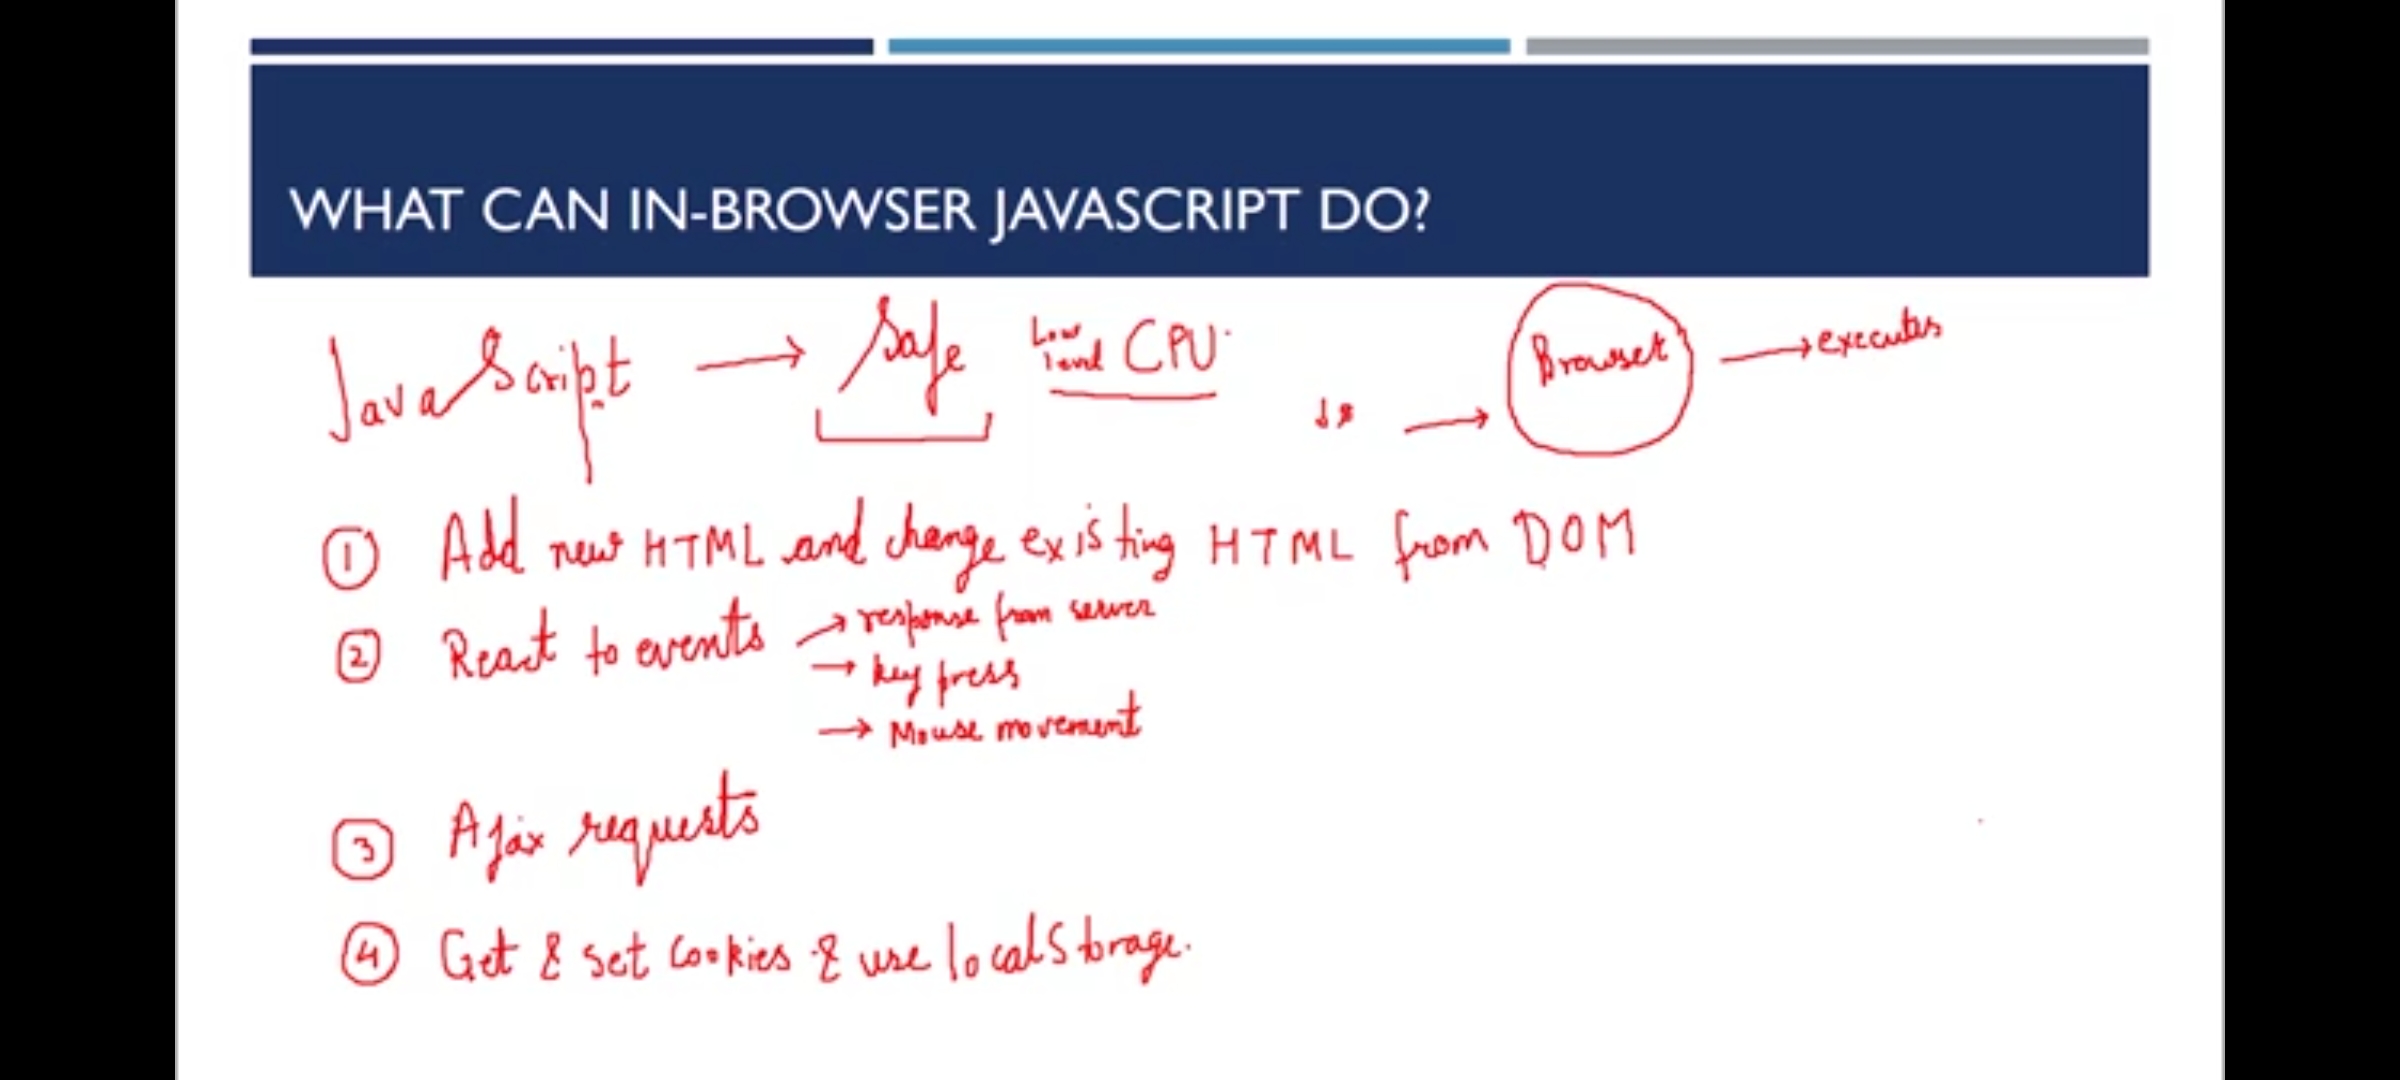 WHAT CAN IN-BROWSER JAVASCRIPT DO?
JavaScript → Safe Low level CPU
Js → Browser → executes
① Add new HTML and change existing HTML from DOM
② React to events → response from server
→ key press
→ Mouse movement
③ Ajax requests
④ Get & set cookies & use localStorage.